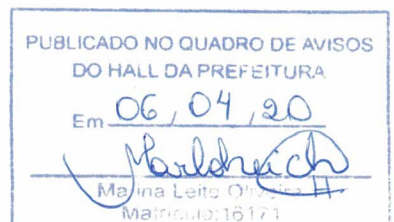 PUBLICADO NO QUADRO DE AVISOS
DO HALL DA PREFEITURA
Em 06/04/20
Marina Leite Oliveira
Matrícula: 16171